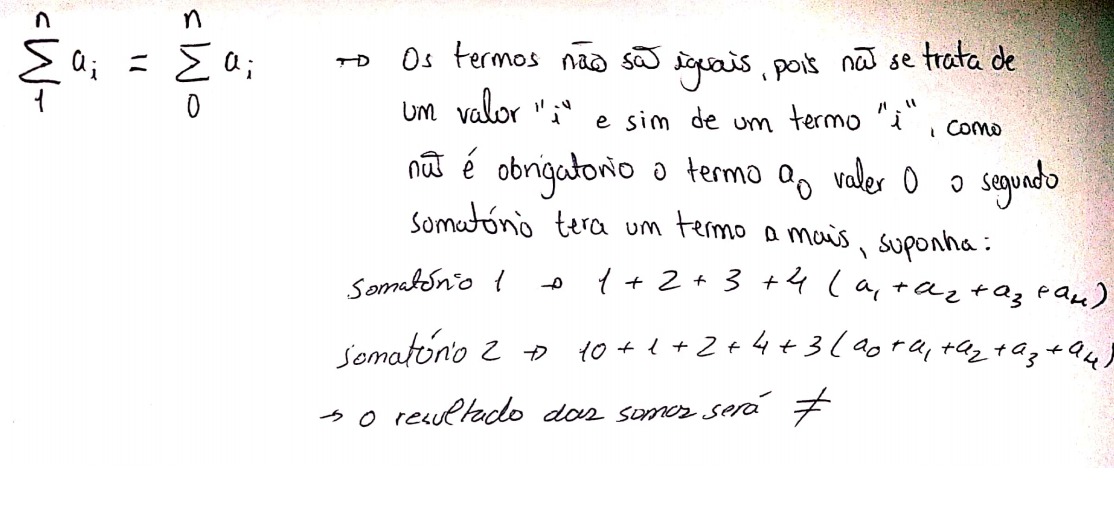 n n
∑ aᵢ = ∑ aᵢ → Os termos não são iguais, pois não se trata de
1 0
um valor "i" e sim de um termo "i", como
não é obrigatorio o termo a₀ valer 0 o segundo
somatório tera um termo a mais, suponha:
somatório 1 → 1 + 2 + 3 + 4 (a₁ + a₂ + a₃ + a₄)
somatório 2 → 10 + 1 + 2 + 4 + 3 (a₀ + a₁ + a₂ + a₃ + a₄)
→ o resultado das somas será ≠